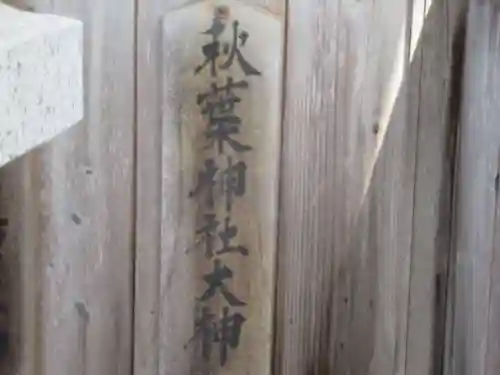 秋葉神社大神